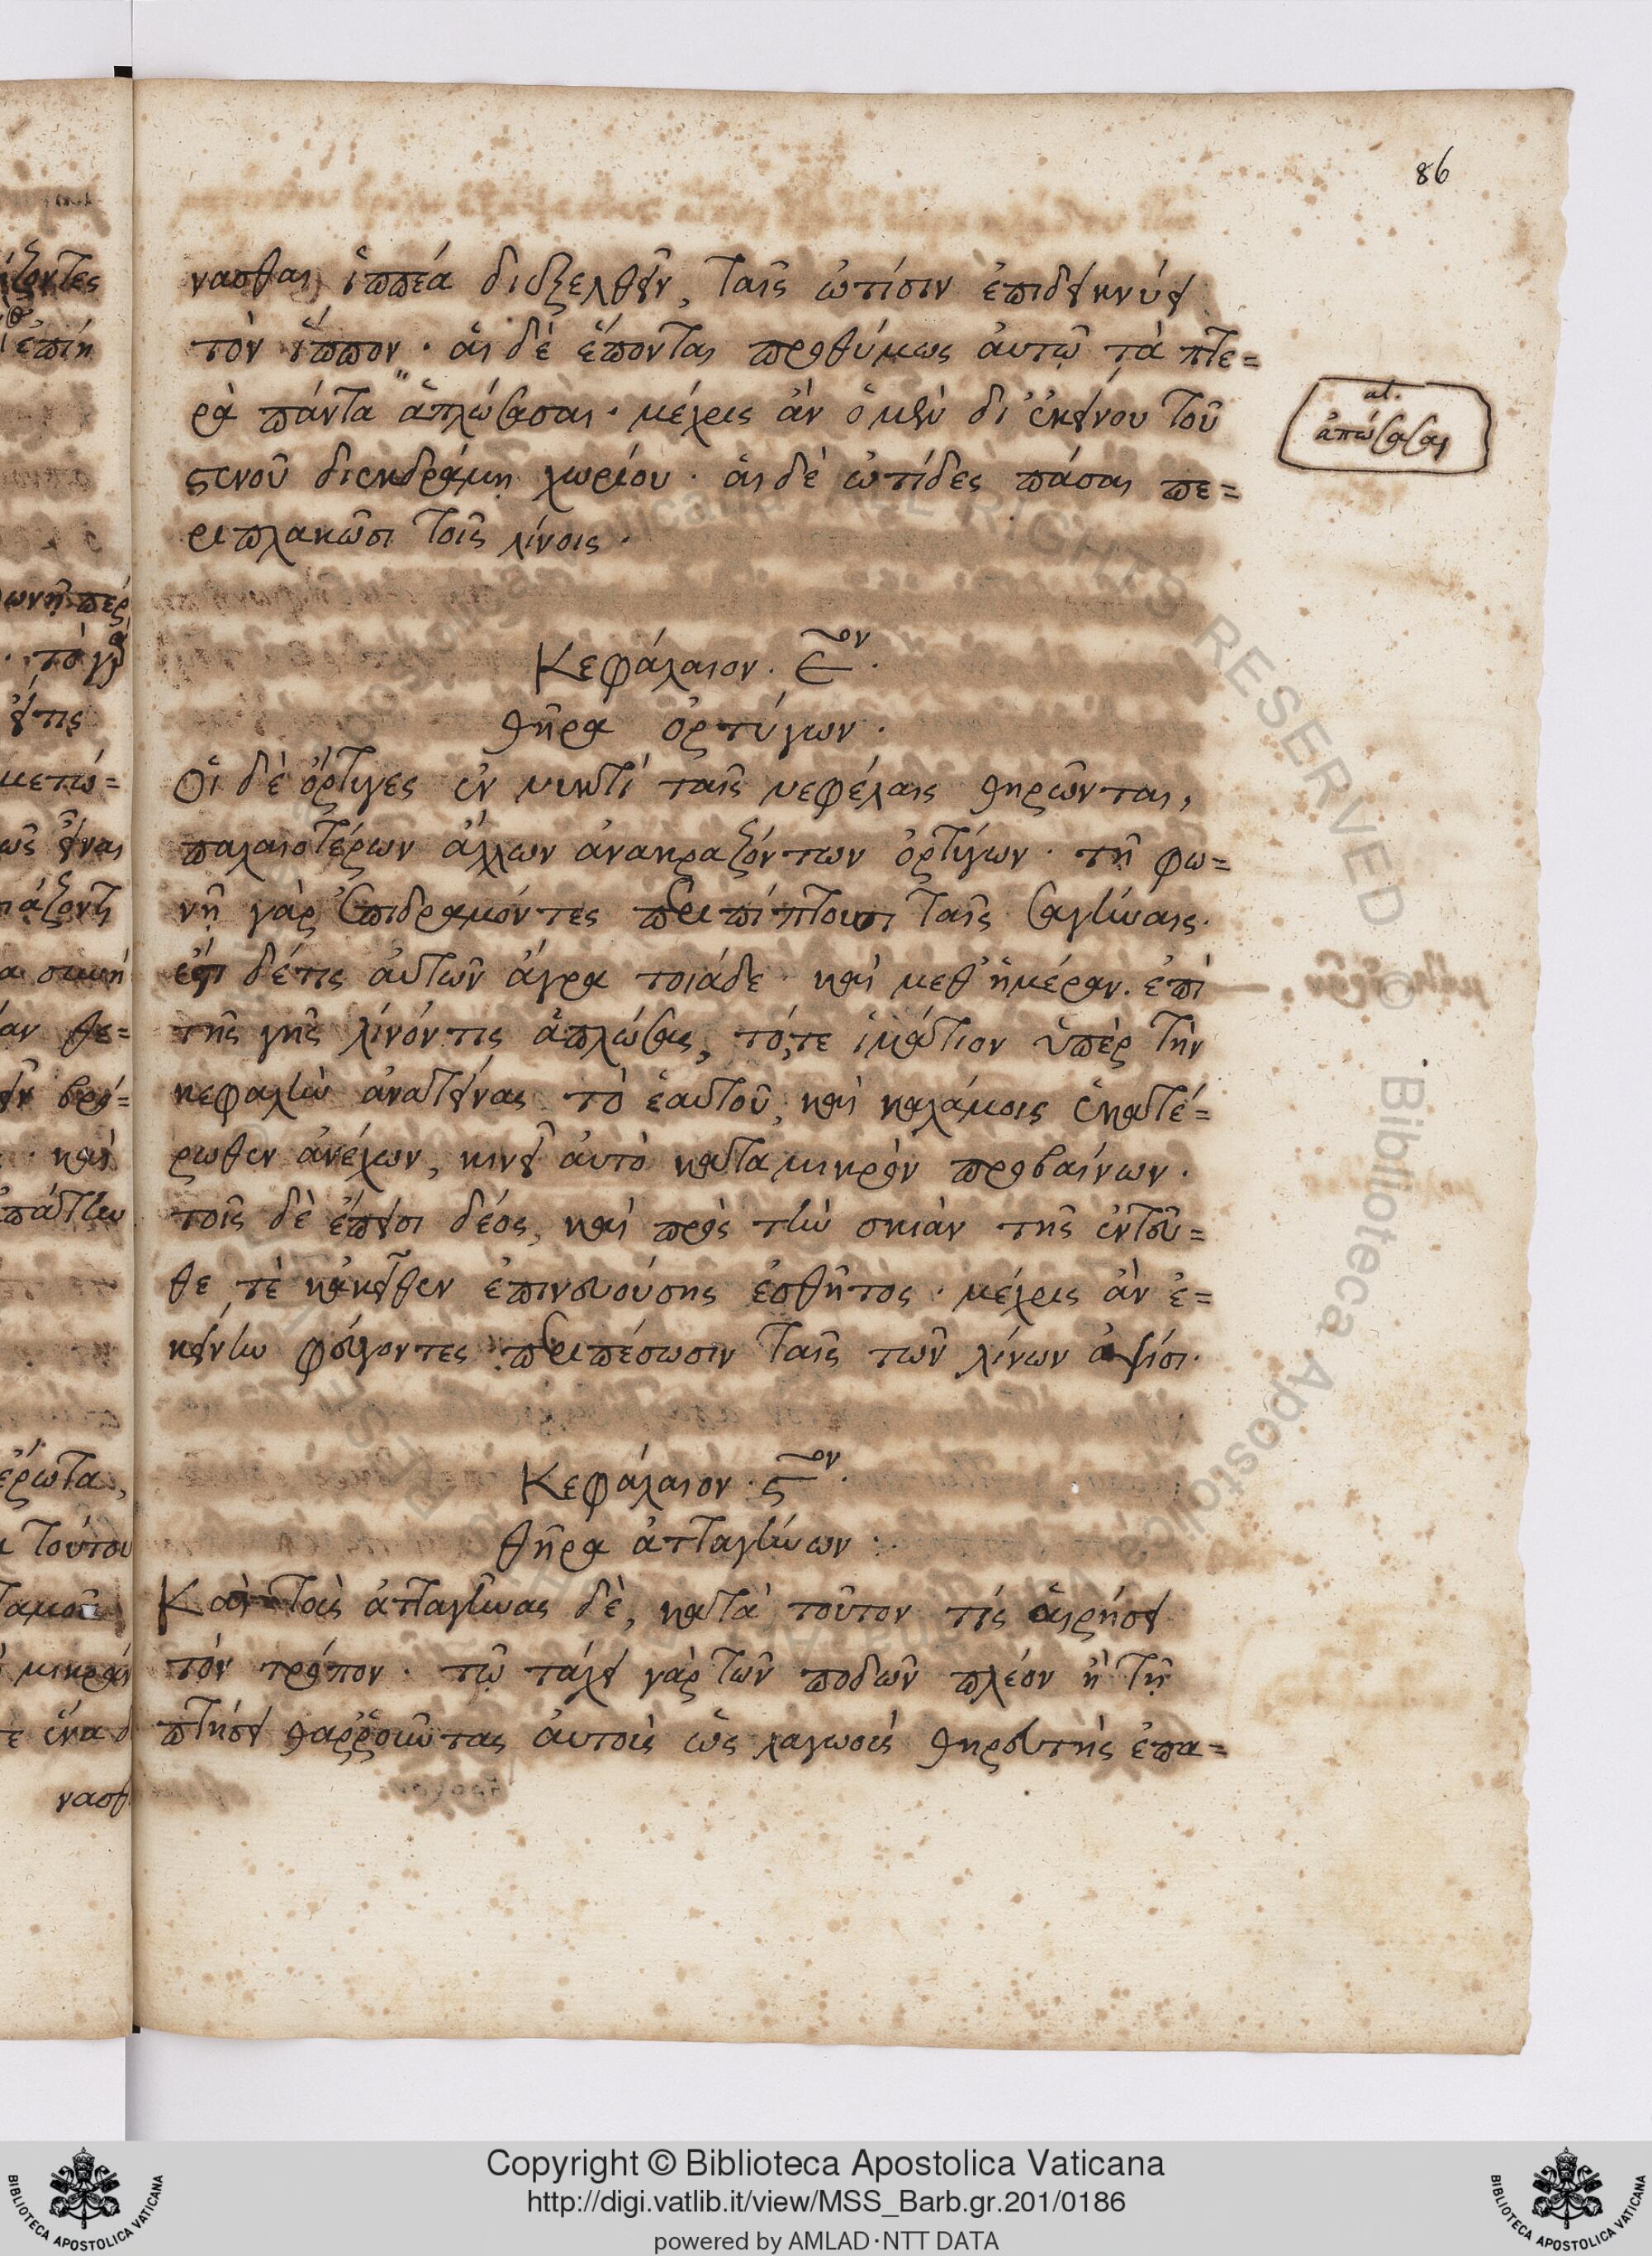 86
νασθαι ἱππέα διεξελθεῖν, ταῖς ὠτίσιν ἐπιδείκνύει
τὸν ἵππον · αἱ δὲ ἕπονται προθύμως ἀυτῷ τὰ πτε=
ρὰ πάντα ἁπλώσασαι · μέχρις ἂν ὁ μὲν δι' ἐκείνου τοῦ
στενοῦ διεκδράμῃ χωρίου · αἱ δὲ ὠτίδες πάσαι πε=
ριπλακῶσι τοῖς λίνοις ·
al.
ἀπώσασαι
Κεφάλαιον · ε^ον ·
θῆρα ὀρτύγων ·
Οἱ δὲ ὄρτυγες ἐν νυκτὶ ταῖς νεφέλαις θηρῶνται,
παλαιοτέρων ἄλλων ἀνακραζόντων ὀρτύγων · τῇ φω=
νῇ γὰρ ἐπιδραμόντες περιπίπτουσι ταῖς σαγήναις ·
ἐστι δέ τις ἀυτῶν ἄγρα τοιάδε · καὶ μεθ' ἡμέραν · ἐπὶ
τῆς γῆς λίνόν τις ἁπλώσας, τό, τε ἱμάτιον ὑπὲρ τὴν
κεφαλὴν ἀνατείνας τὸ ἑαυτοῦ, καὶ καλάμοις ἑκατέ=
ρωθεν ἀνέχων, κινεῖ ἀυτὸ κατα μικρὸν προβαίνων ·
τοῖς δὲ ἔπεισι δέος, καὶ πρὸς τὴν σκιὰν τῆς ἐντεῦ=
θε τὲ κἀκεῖθεν ἐπινευούσης ἐσθῆτος · μέχρις ἂν ἐ=
κείνην φεύγοντες περιπέσωσιν ταῖς τῶν λίνων ἁψίσι ·
Κεφάλαιον · ς^ον ·
θῆρα ἀτταγήνων ·
Καὶ τοὶς ἀτταγῆνας δὲ, κατὰ τοῦτον τίς αἱρήσει
τὸν τρόπον · τῷ τάχει γὰρ τῶν ποδῶν πλέον ἢ τῇ
πτήσει θαῤῥοῦντας ἀυτοὺς ὡς λαγωοὺς θηρευτὴς ἐπα=
Copyright © Biblioteca Apostolica Vaticana
http://digi.vatlib.it/view/MSS_Barb.gr.201/0186
powered by AMLAD·NTT DATA